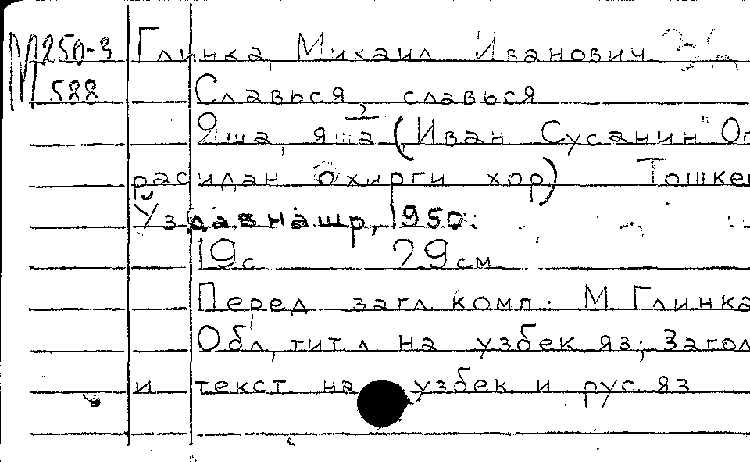 М 250-3 Глинка, Михаил Иванович
588 Славься, славься
Яша, яша (Иван Сусанин" Оп
расидан Охирги хор) Тошкен
Ўздавнашр, 1950.
19с 29см
Перед загл. комп.: М. Глинка
Обл, тит. л на узбек яз; Загол
и текст на узбек и рус. яз